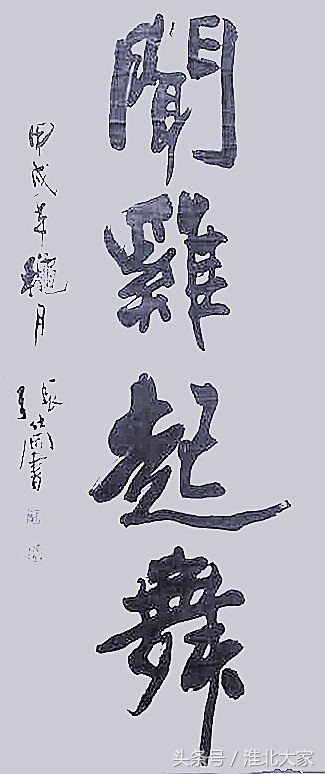 聞雞起舞
丙戌年臘月
張書
头条号 / 淮北大家